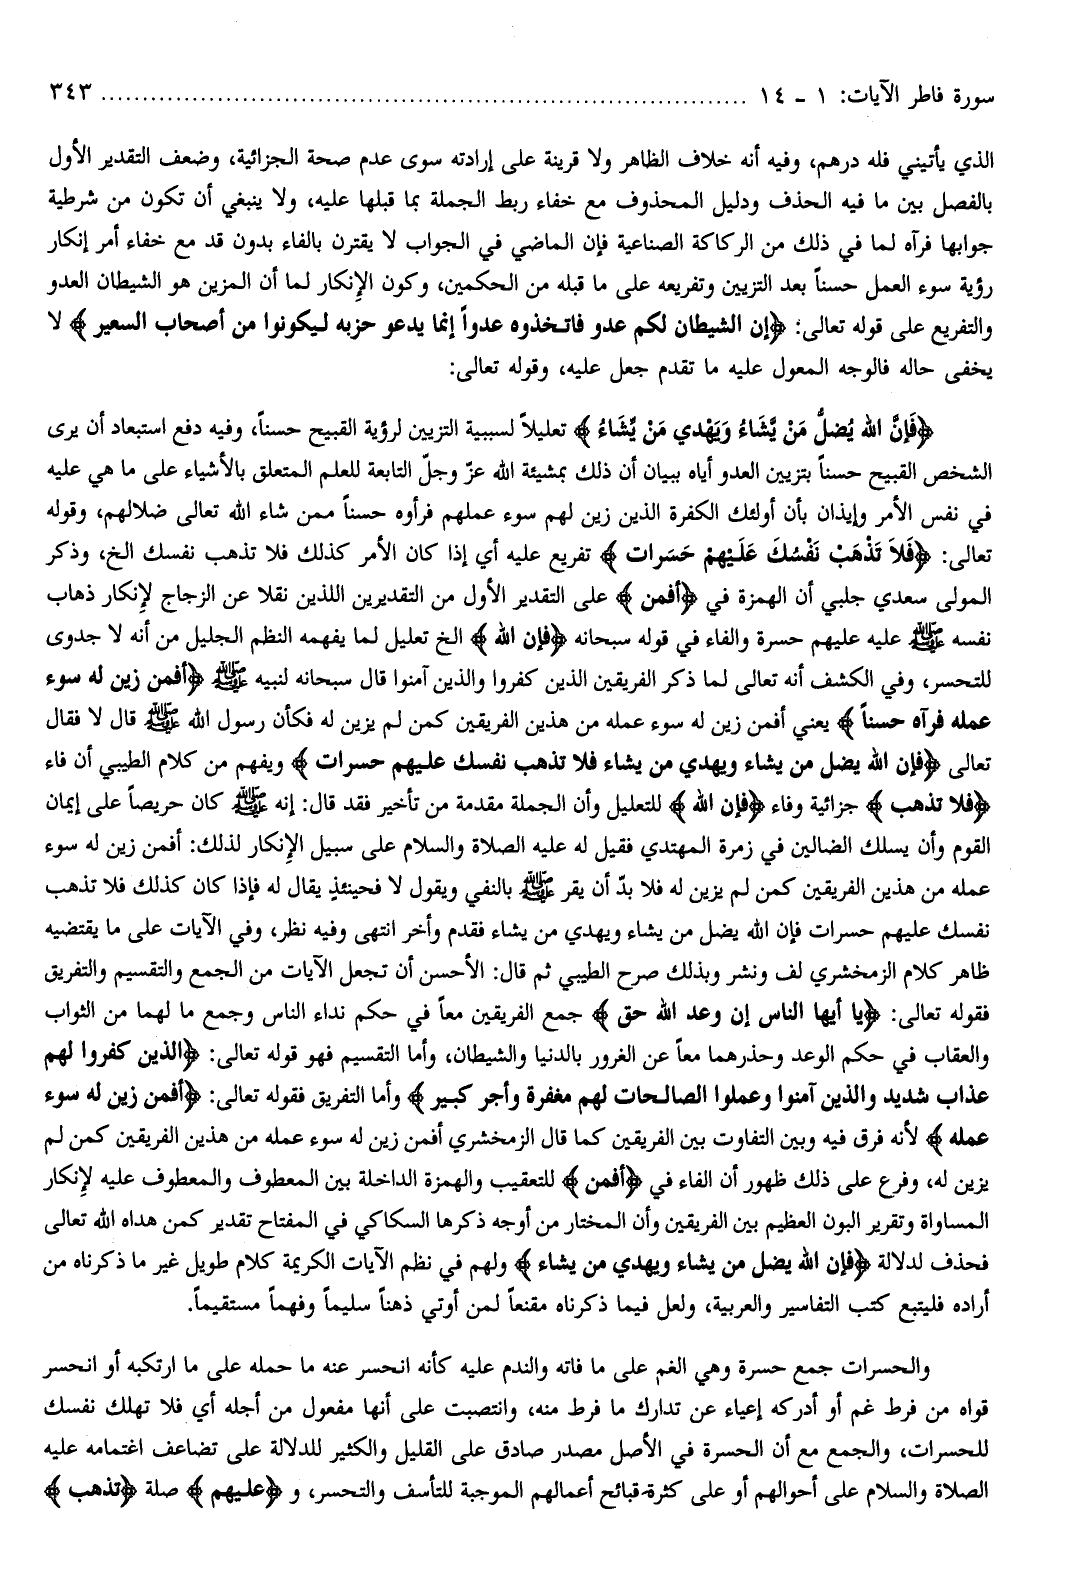 سورة فاطر الآيات: ١ - ١٤ ................................................................................ ٣٤٣
الذي يأتيني فله درهم، وفيه أنه خلاف الظاهر ولا قرينة على إرادته سوى عدم صحة الجزائية، وضعف التقدير الأول
بالفصل بين ما فيه الحذف ودليل المحذوف مع خفاء ربط الجملة بما قبلها عليه، ولا ينبغي أن تكون من شرطية
جوابها فرآه لما في ذلك من الركاكة الصناعية فإن الماضي في الجواب لا يقترن بالفاء بدون قد مع خفاء أمر إنكار
رؤية سوء العمل حسناً بعد التزيين وتفريعه على ما قبله من الحكمين، وكون الإنكار لما أن المزين هو الشيطان العدو
والتفريع على قوله تعالى: ﴿إن الشيطان لكم عدو فاتخذوه عدواً إنما يدعو حزبه ليكونوا من أصحاب السعير﴾ لا
يخفى حاله فالوجه المعول عليه ما تقدم جعل عليه، وقوله تعالى:
﴿فَإِنَّ الله يُضلُّ مَنْ يَّشَاءُ وَيَهْدي مَنْ يَّشَاءُ﴾ تعليلاً لسببية التزيين لرؤية القبيح حسناً، وفيه دفع استبعاد أن يرى
الشخص القبيح حسناً بتزيين العدو أياه ببيان أن ذلك بمشيئة الله عزّ وجلّ التابعة للعلم المتعلق بالأشياء على ما هي عليه
في نفس الأمر وإيذان بأن أولئك الكفرة الذين زين لهم سوء عملهم فرأوه حسناً ممن شاء الله تعالى ضلالهم، وقوله
تعالى: ﴿فَلاَ تَذْهَبْ نَفْسُكَ عَلَيْهِمْ حَسَرات﴾ تفريع عليه أي إذا كان الأمر كذلك فلا تذهب نفسك الخ، وذكر
المولى سعدي جلبي أن الهمزة في ﴿أفمن﴾ على التقدير الأول من التقديرين اللذين نقلا عن الزجاج لإنكار ذهاب
نفسه ﷺ عليه عليهم حسرة والفاء في قوله سبحانه ﴿فإن الله﴾ الخ تعليل لما يفهمه النظم الجليل من أنه لا جدوى
للتحسر، وفي الكشف أنه تعالى لما ذكر الفريقين الذين كفروا والذين آمنوا قال سبحانه لنبيه ﷺ ﴿أفمن زين له سوء
عمله فرآه حسناً﴾ يعني أفمن زين له سوء عمله من هذين الفريقين كمن لم يزين له فكأن رسول الله ﷺ قال لا فقال
تعالى ﴿فإن الله يضل من يشاء ويهدي من يشاء فلا تذهب نفسك عليهم حسرات﴾ ويفهم من كلام الطيبي أن فاء
﴿فلا تذهب﴾ جزائية وفاء ﴿فإن الله﴾ للتعليل وأن الجملة مقدمة من تأخير فقد قال: إنه ﷺ كان حريصاً على إيمان
القوم وأن يسلك الضالين في زمرة المهتدي فقيل له عليه الصلاة والسلام على سبيل الإنكار لذلك: أفمن زين له سوء
عمله من هذين الفريقين كمن لم يزين له فلا بدّ أن يقر ﷺ بالنفي ويقول لا فحينئذٍ يقال له فإذا كان كذلك فلا تذهب
نفسك عليهم حسرات فإن الله يضل من يشاء ويهدي من يشاء فقدم وأخر انتهى وفيه نظر، وفي الآيات على ما يقتضيه
ظاهر كلام الزمخشري لف ونشر وبذلك صرح الطيبي ثم قال: الأحسن أن تجعل الآيات من الجمع والتقسيم والتفريق
فقوله تعالى: ﴿يا أيها الناس إن وعد الله حق﴾ جمع الفريقين معاً في حكم نداء الناس وجمع ما لهما من الثواب
والعقاب في حكم الوعد وحذرهما معاً عن الغرور بالدنيا والشيطان، وأما التقسيم فهو قوله تعالى: ﴿الذين كفروا لهم
عذاب شديد والذين آمنوا وعملوا الصالحات لهم مغفرة وأجر كبير﴾ وأما التفريق فقوله تعالى: ﴿أفمن زين له سوء
عمله﴾ لأنه فرق فيه وبين التفاوت بين الفريقين كما قال الزمخشري أفمن زين له سوء عمله من هذين الفريقين كمن لم
يزين له، وفرع على ذلك ظهور أن الفاء في ﴿أفمن﴾ للتعقيب والهمزة الداخلة بين المعطوف والمعطوف عليه لإنكار
المساواة وتقرير البون العظيم بين الفريقين وأن المختار من أوجه ذكرها السكاكي في المفتاح تقدير كمن هداه الله تعالى
فحذف لدلالة ﴿فإن الله يضل من يشاء ويهدي من يشاء﴾ ولهم في نظم الآيات الكريمة كلام طويل غير ما ذكرناه من
أراده فليتبع كتب التفاسير والعربية، ولعل فيما ذكرناه مقنعاً لمن أوتي ذهناً سليماً وفهماً مستقيماً.
والحسرات جمع حسرة وهي الغم على ما فاته والندم عليه كأنه انحسر عنه ما حمله على ما ارتكبه أو انحسر
قواه من فرط غم أو أدركه إعياء عن تدارك ما فرط منه، وانتصبت على أنها مفعول من أجله أي فلا تهلك نفسك
للحسرات، والجمع مع أن الحسرة في الأصل مصدر صادق على القليل والكثير للدلالة على تضاعف اغتمامه عليه
الصلاة والسلام على أحوالهم أو على كثرة قبائح أعمالهم الموجبة للتأسف والتحسر، و ﴿عليهم﴾ صلة ﴿تذهب﴾